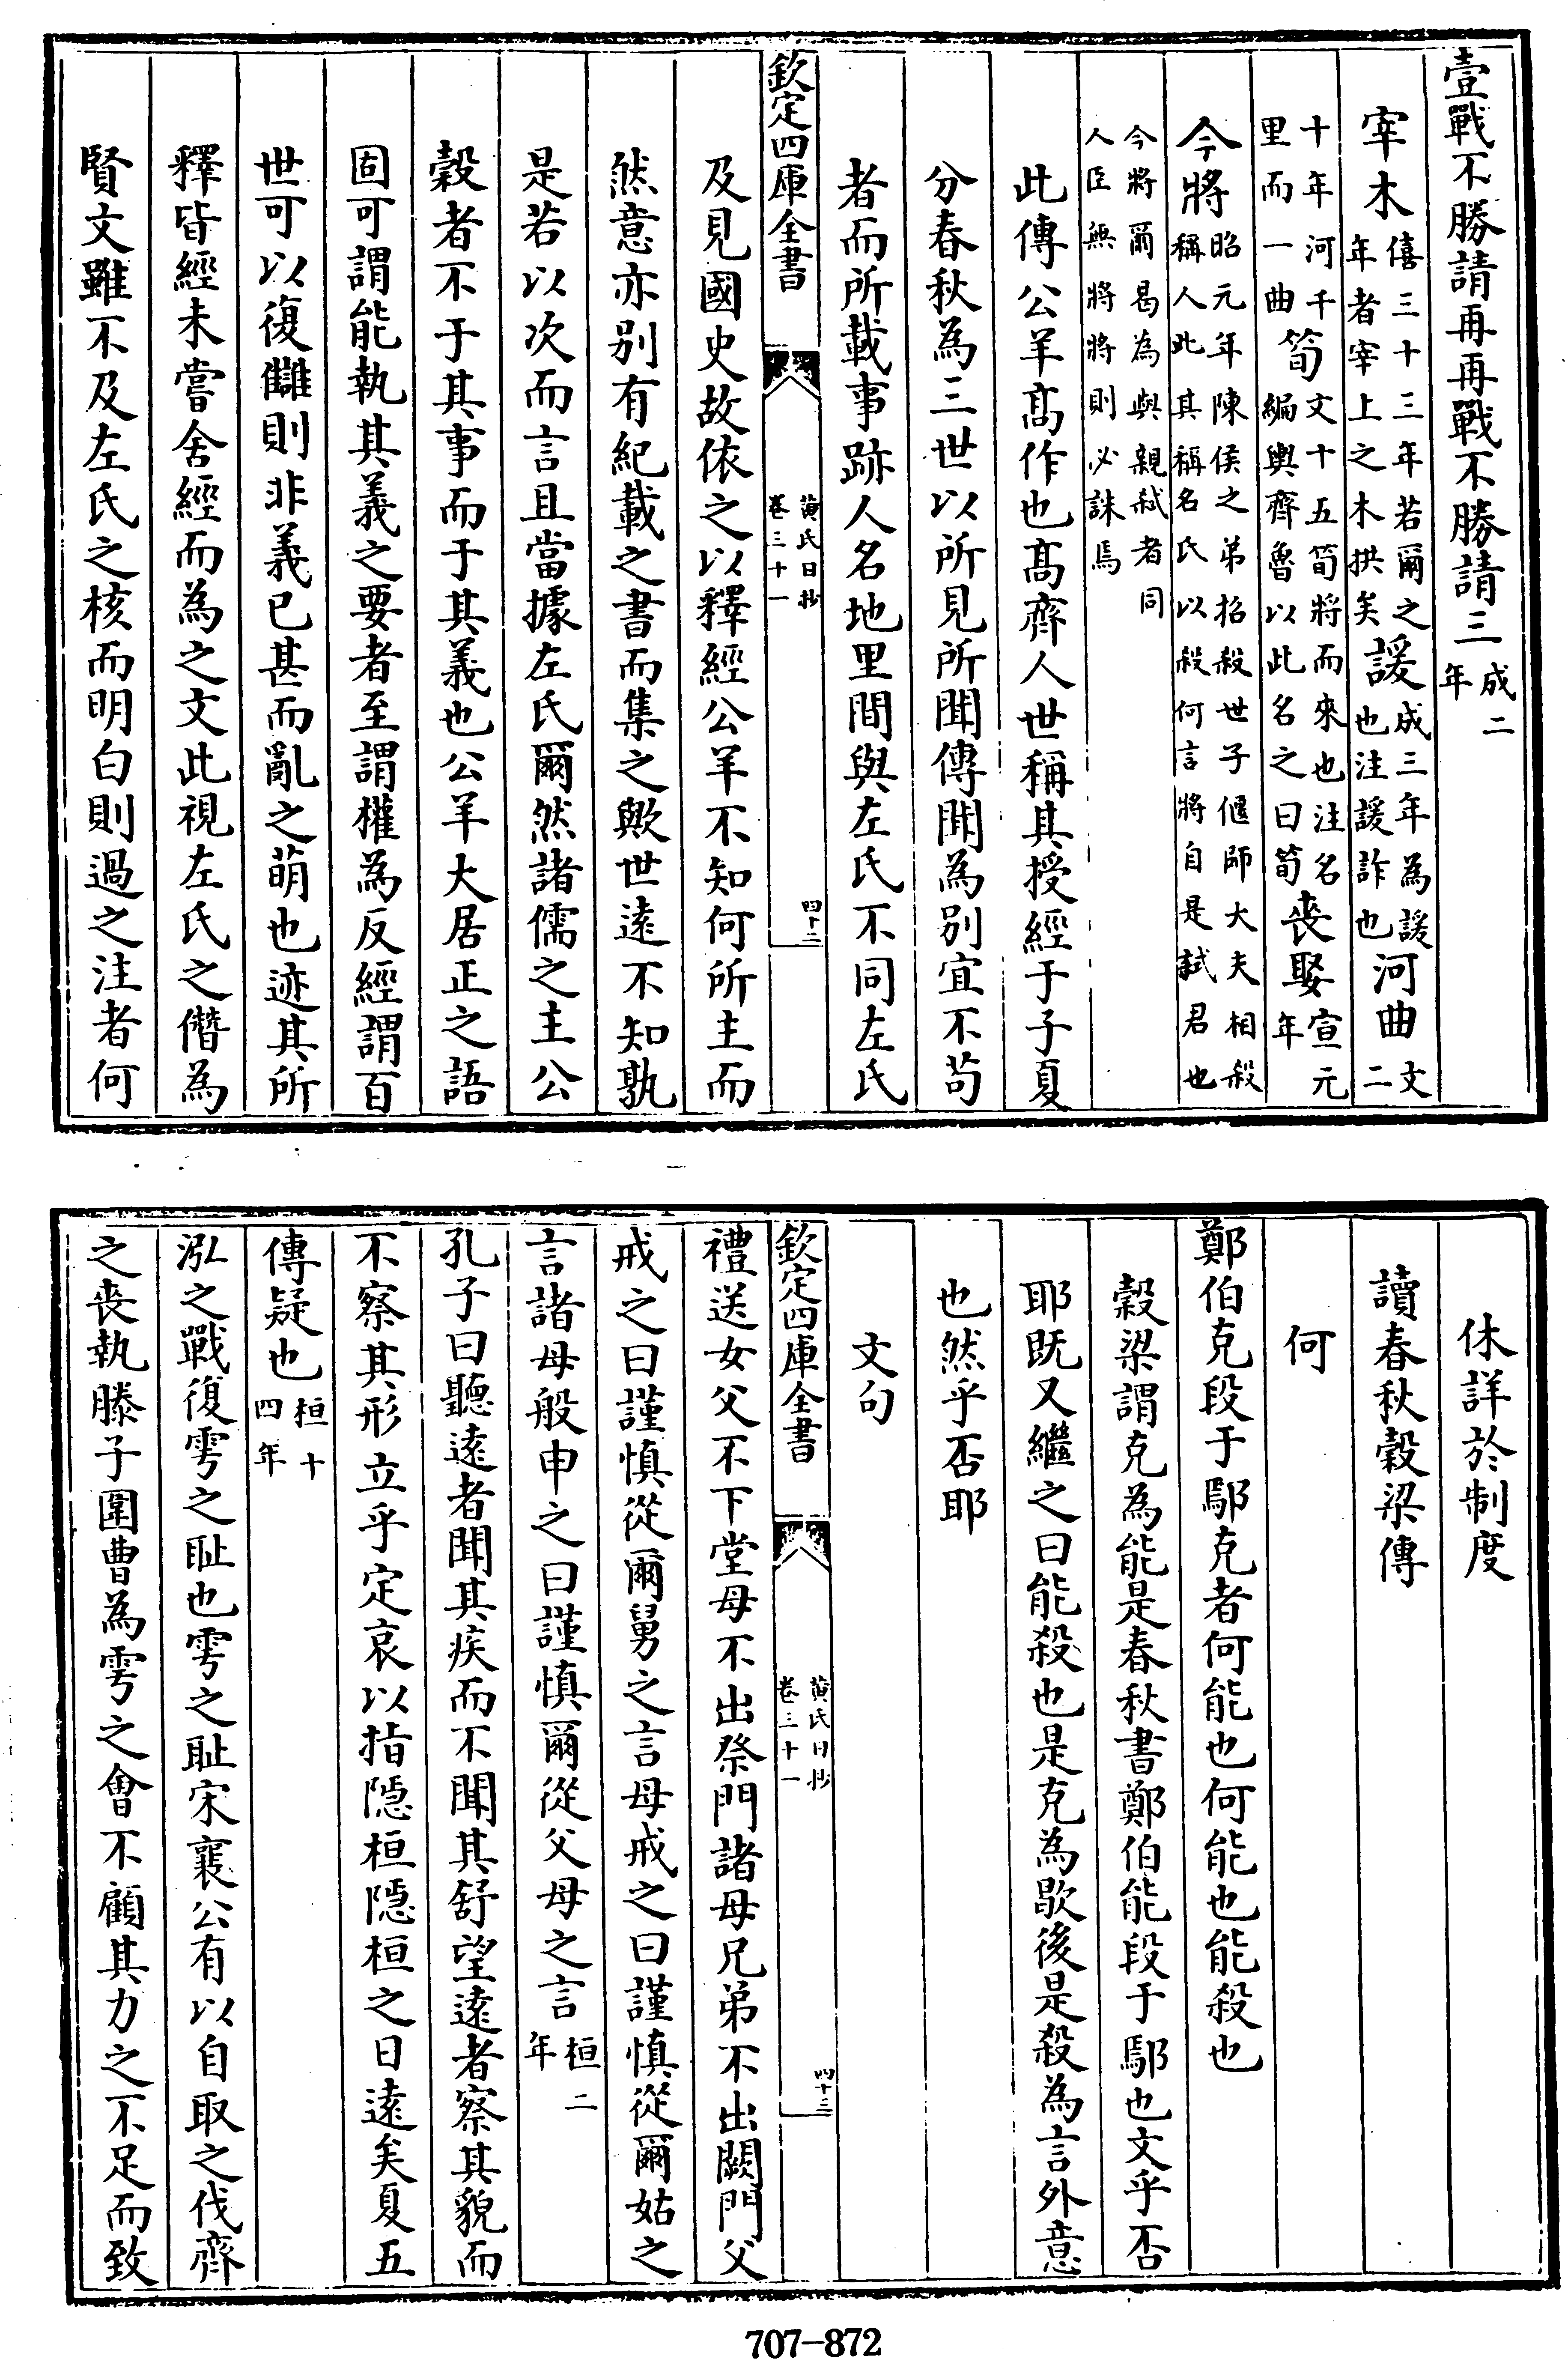 壹戰不勝請再再戰不勝請三成二年
宰木僖三十三年若爾之年者宰上之木拱矣諼成三年為諼也注諼詐也河曲文二
十年河千里而一曲筍文十五筍將而來也注名編輿齊魯以此名之曰筍喪娶宣元年
今將昭元年陳侯之弟招殺世子偃師大夫相殺稱人此其稱名氏以殺何言將自是試君也
今將爾曷為與親弒者同人臣無將將則必誅焉
此傳公羊高作也高齊人世稱其授經于子夏
分春秋為三世以所見所聞傳聞為別宜不茍
者而所載事跡人名地里間與左氏不同左氏
欽定四庫全書 黃氏日抄卷三十一 四十二
及見國史故依之以釋經公羊不知何所主而
然意亦別有紀載之書而集之歟世遠不知孰
是若以次而言且當據左氏爾然諸儒之主公
穀者不于其事而于其義也公羊大居正之語
固可謂能執其義之要者至謂權為反經謂百
世可以復讎則非義已甚而亂之萌也迹其所
釋皆經未嘗舍經而為之文此視左氏之僭為
賢文雖不及左氏之核而明白則過之注者何
休詳於制度
讀春秋穀梁傳
何
鄭伯克段于鄢克者何能也何能也能殺也
穀梁謂克為能是春秋書鄭伯能段于鄢也文乎否
耶既又繼之曰能殺也是克為歇後是殺為言外意
也然乎否耶
文句
欽定四庫全書 黃氏日抄卷三十一 四十三
禮送女父不下堂母不出祭門諸母兄弟不出闕門父
戒之曰謹慎從爾舅之言母戒之曰謹慎從爾姑之
言諸母般申之曰謹慎爾從父母之言桓二年
孔子曰聽遠者聞其疾而不聞其舒望遠者察其貌而
不察其形立乎定哀以指隱桓隱桓之日遠矣夏五
傳疑也桓十四年
泓之戰復雩之恥也雩之恥宋襄公有以自取之伐齊
之喪執滕子圍曹為雩之會不顧其力之不足而致
707-872